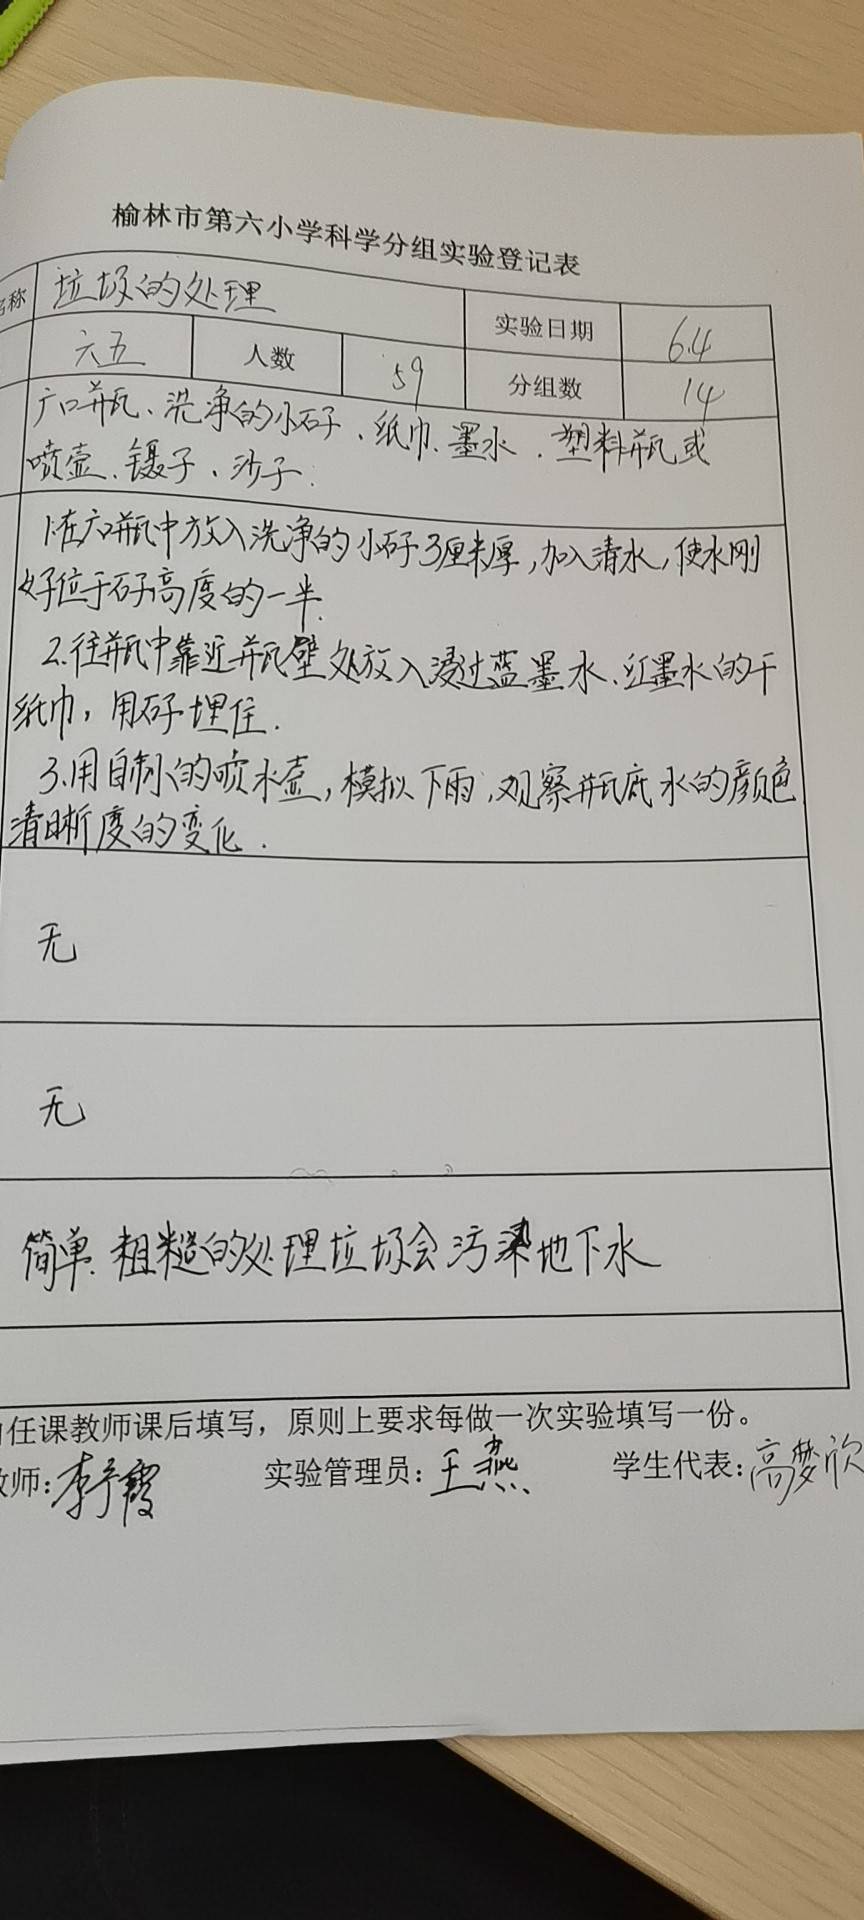 榆林市第六小学科学分组实验登记表
名称 垃圾的处理 实验日期 6.4
六五 人数 59 分组数 14
广口瓶、洗净的小石子、纸巾、墨水、塑料瓶或
喷壶、镊子、沙子.
1.在广口瓶中放入洗净的小石子3厘米厚,加入清水,使水刚
好位于石子高度的一半.
2.往瓶中靠近瓶壁处放入浸过蓝墨水、红墨水的干
纸巾,用石子埋住.
3.用自制的喷水壶,模拟下雨,观察瓶底水的颜色
清晰度的变化.
无
无
简单、粗糙的处理垃圾会污染地下水
任课教师课后填写，原则上要求每做一次实验填写一份。
教师: 实验管理员: 王燕 学生代表: 高梦欣